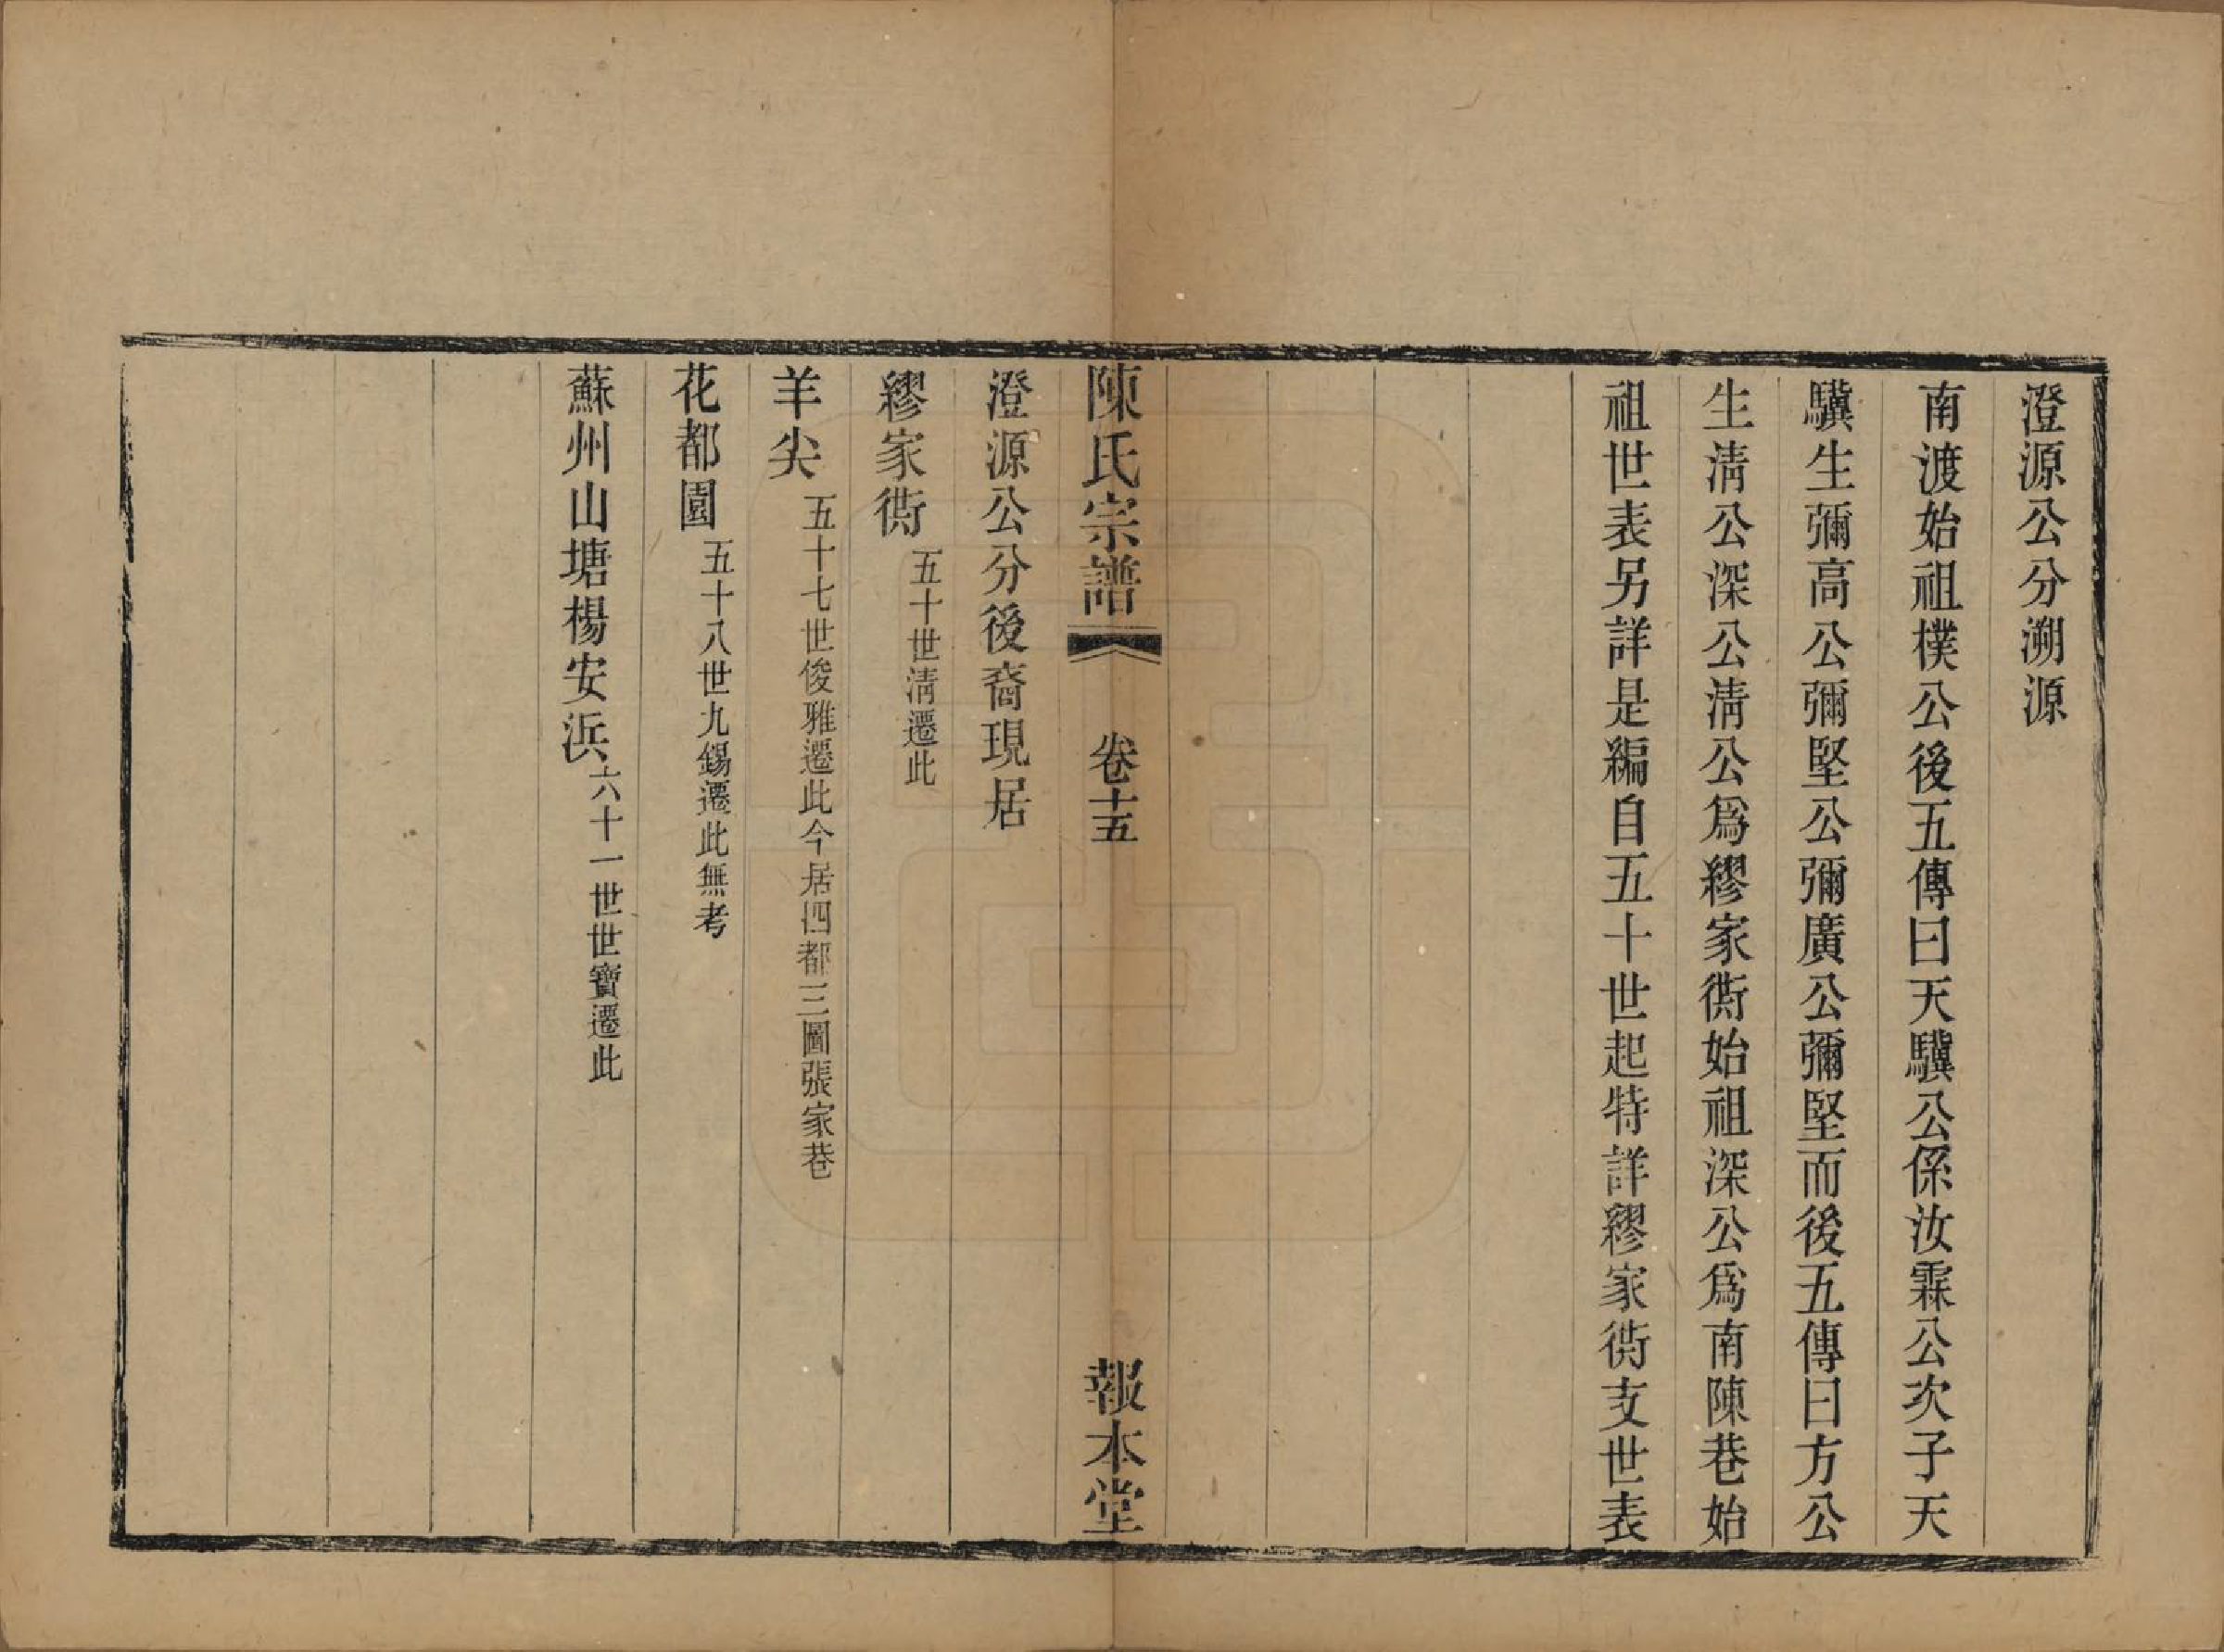 澄源公分溯源
南渡始祖樸公後五傳曰天驥公係汝霖公次子天
驥生彌高公彌堅公彌廣公彌堅而後五傳曰方公
生淸公深公淸公爲繆家衖始祖深公爲南陳巷始
祖世表另詳是編自五十世起特詳繆家衖支世表
陳氏宗譜 卷十五 報本堂
澄源公分後裔現居
繆家衖 五十世淸遷此
羊尖 五十七世俊雅遷此今居四都三圖張家巷
花都園 五十八世九錫遷此無考
蘇州山塘楊安浜 六十一世世寶遷此